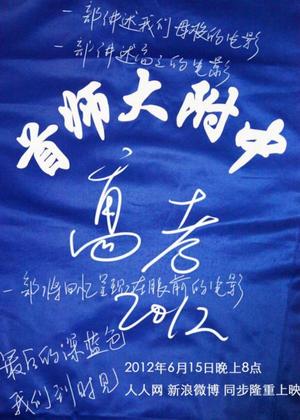 一部讲述我们母校的电影
一部讲述高三的电影
首师大附中
高考
一部将回忆呈现在眼前的电影
2012
最后的深蓝色
我们到时见
2012年6月15日晚上8点
人人网 新浪微博 同步隆重上映